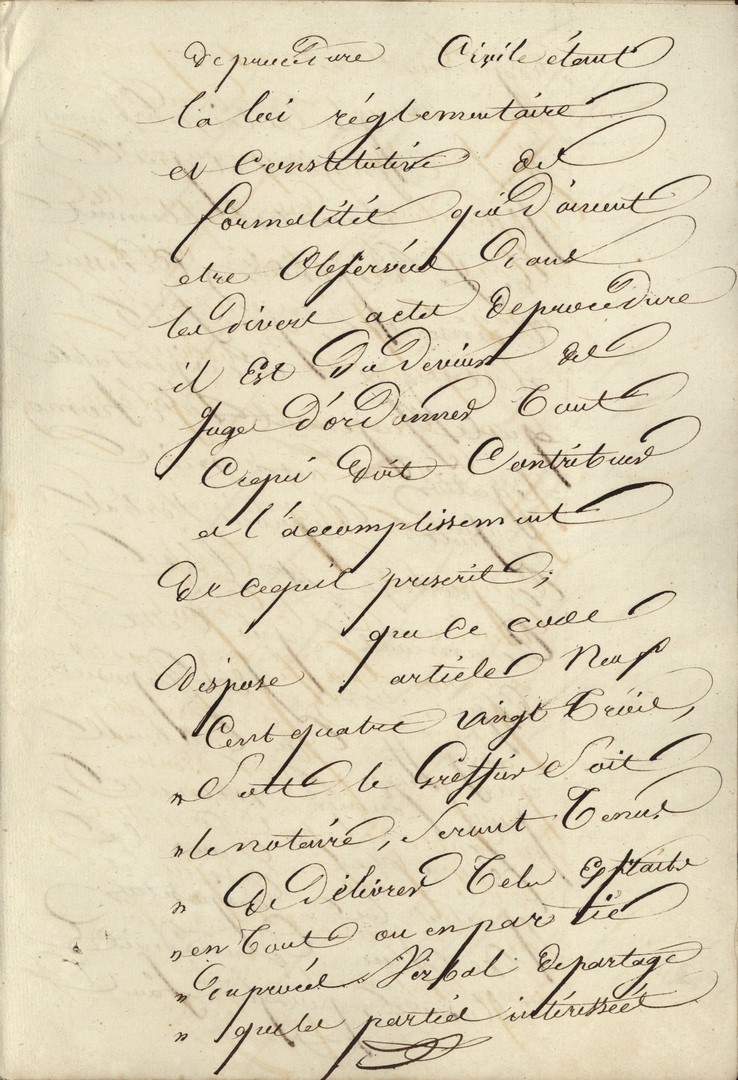 de procédure Civile étant
la loi réglementaire
et Constitutive des
formalités qui doivent
etre Observées dans
les divers actes de procédure
il Est du devoir des
Juges d'ordonner tout
Ce qui doit Contribuer
et l'accomplissement
De ce qu'il prescrit ;
que ce code
dispose article Neuf
Cent quatre vingt trois,
" Soit le Greffier Soit
" le notaire, seront tenus
" De Délivrer tels Extraits
" en tout ou en partie
" du procès Verbal de partage
" que les parties intéressées